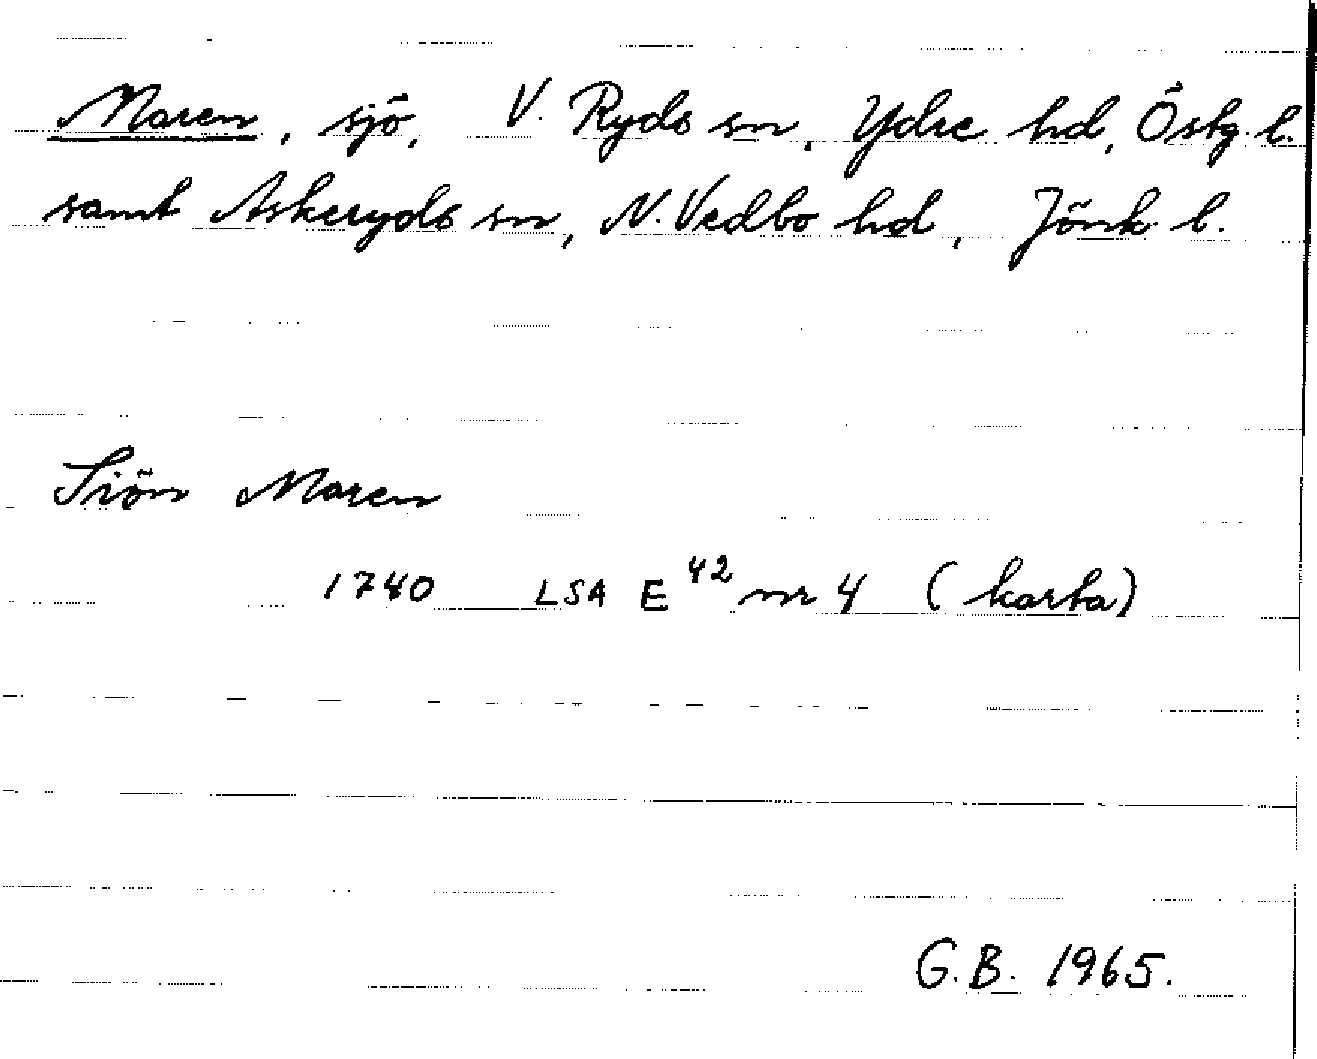 Maren, sjö, V. Ryds sn, Ydre hd, Östg. l.
samt Askeryds sn, N. Vedbo hd, Jönk. l.
Siön Maren
1740 LSA E⁴² nr 4 (karta)
G.B. 1965.